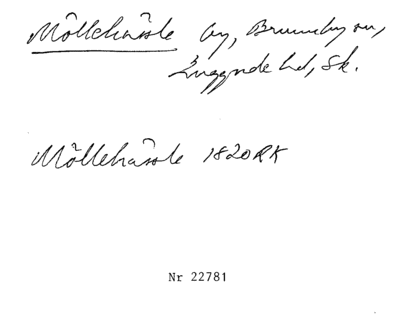 Möllehässle by, Brunnby sn,
Luggude hd, Sk.
Möllehässle 1820 RK
Nr 22781